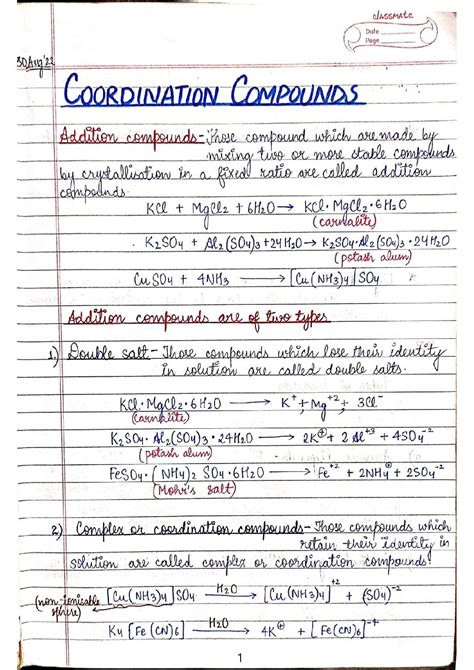 classmate
Date
Page
30Aug'22
COORDINATION COMPOUNDS
Addition compounds- Those compound which are made by
mixing two or more stable compounds
by crystallisation in a fixed ratio are called addition
compounds.
KCl + MgCl2 + 6H2O → KCl·MgCl2·6H2O
(carnalite)
K2SO4 + Al2(SO4)3 + 24H2O → K2SO4·Al2(SO4)3·24H2O
(potash alum)
CuSO4 + 4NH3 → [Cu(NH3)4]SO4
Addition compounds are of two types
1) Double salt- Those compounds which lose their identity
in solution are called double salts.
KCl·MgCl2·6H2O → K⁺ + Mg⁺² + 3Cl⁻
(carnalite)
K2SO4·Al2(SO4)3·24H2O → 2K⊕ + 2Al⁺³ + 4SO4⁻²
(potash alum)
FeSO4·(NH4)2SO4·6H2O → Fe⁺² + 2NH4⊕ + 2SO4⁻²
(Mohr's salt)
2) Complex or coordination compounds- Those compounds which
retain their identity in
solution are called complex or coordination compounds.
(non-ionisable sphere) [Cu(NH3)4]SO4 —H2O→ [Cu(NH3)4]⁺² + (SO4)⁻²
K4[Fe(CN)6] —H2O→ 4K⊕ + [Fe(CN)6]⁻⁴
1